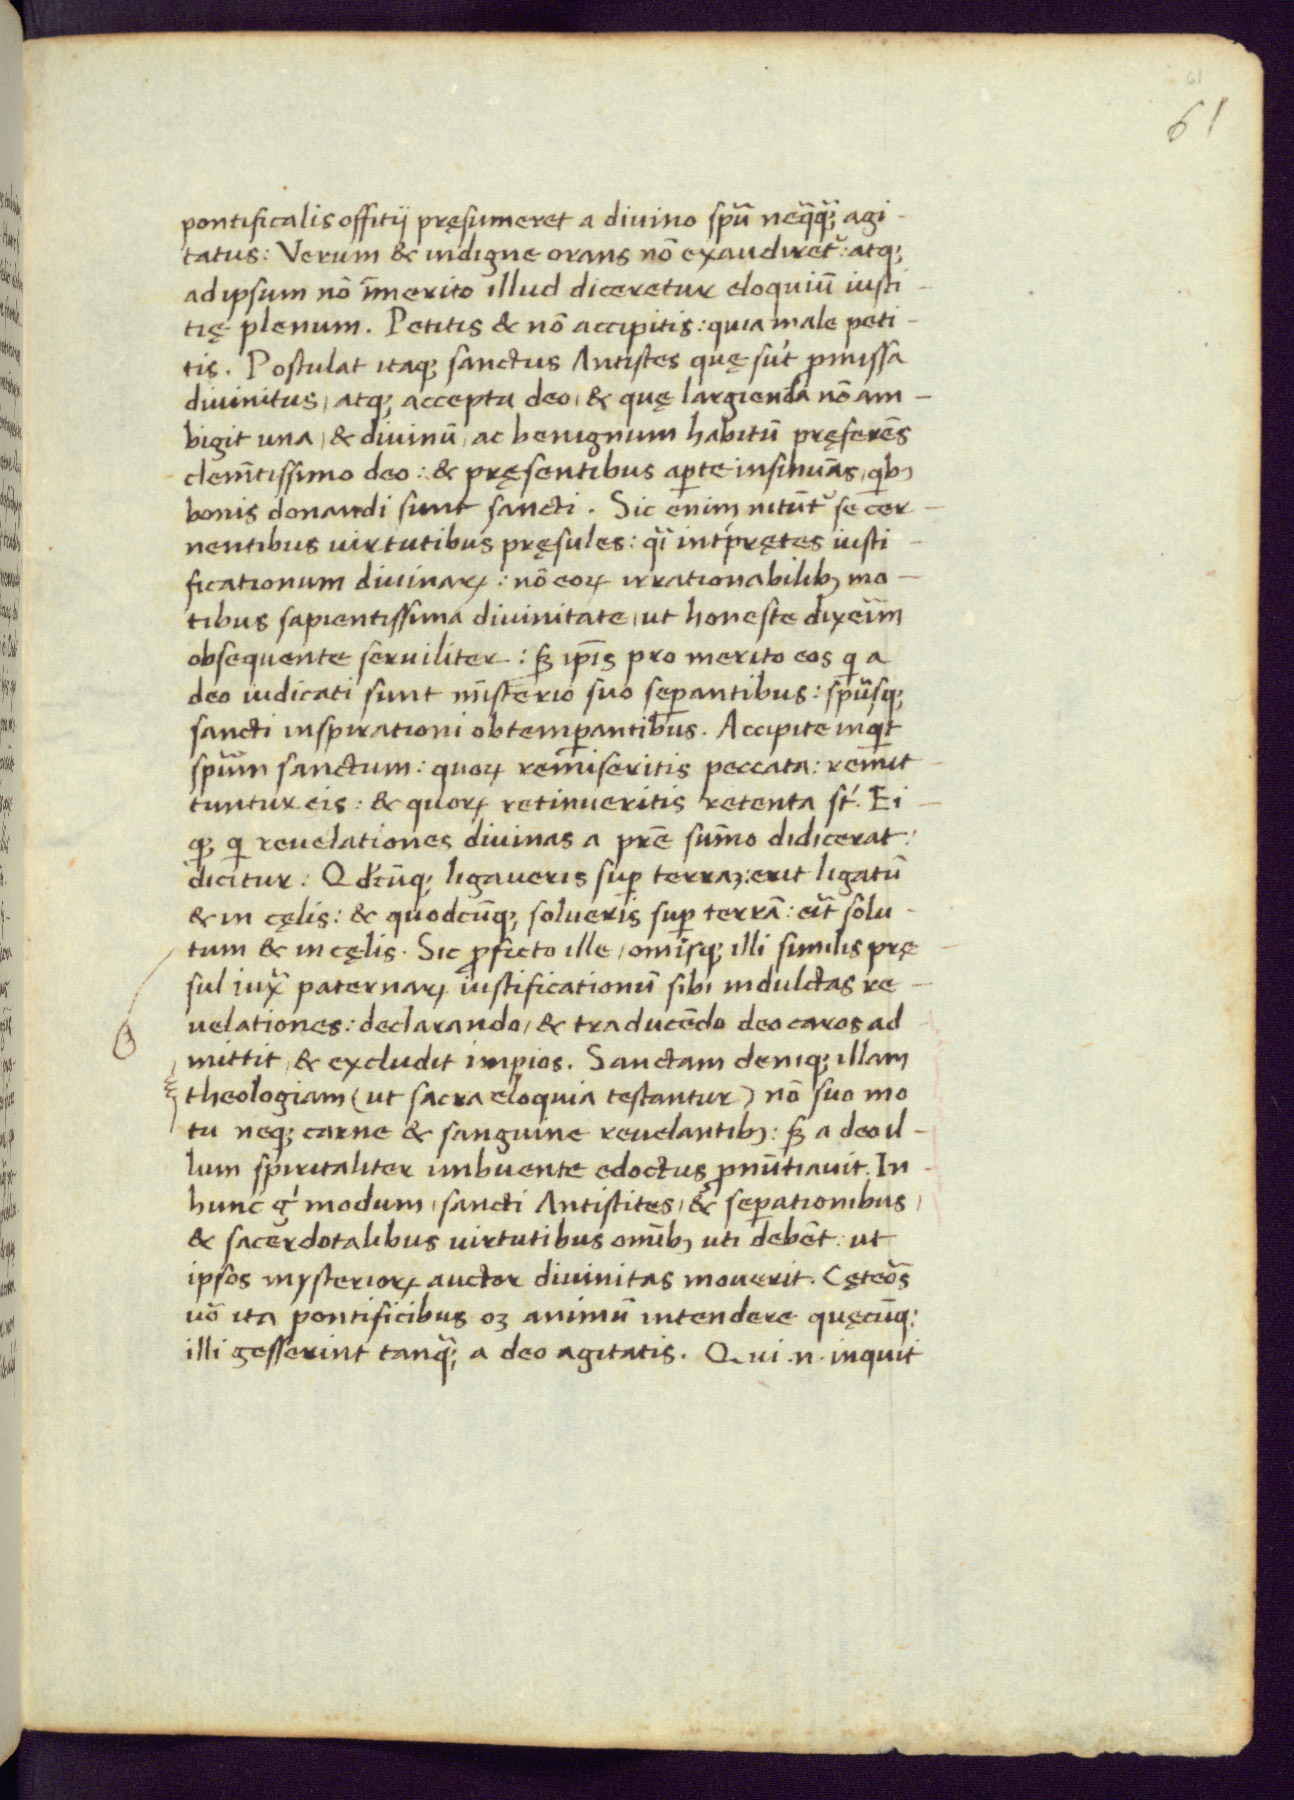 61
61
pontificalis offitij pręsumeret a divino spũ neq̃q̃; agi-
tatus: Verum & indigne orans nõ exaudiret̃: atq;
ad ipsum nõ ĩmerito illud diceretur eloquiũ iusti-
tię plenum. Petitis & nõ accipitis: quia male peti-
tis. Postulat itaq; sanctus Antistes quę su᷑t ꝓmissa
divinitus, atq; accepta deo, & quę largienda nõ am-
bigit una, & divinũ, ac benignum habitũ pręferẽs
clem̃tissimo deo: & pręsentibus aꝑte insinuãs, qbꝫ
bonis donandi sunt sancti. Sic enim nitũt᷑ se cer-
nentibus virtutibus pręsules: q̃i int᷑prętes iusti-
ficationum divinaꝝ: nõ eoꝝ irrationabilibꝫ mo-
tibus sapientissima divinitate, ut honeste dixeĩm
obsequente serviliter: sꝫ ip̃is pro merito eos q a
deo iudicati sunt m̃isterio suo seꝑantibus: spũsq;
sancti inspirationi obtemꝑantibus. Accipite inqt
spũm sanctum: quoꝝ rem̃iseritis peccata: remĩt-
tuntur eis: & quoꝝ retinueritis retenta st́. Ei-
q; q revelationes divinas a prẽ sum̃o didicerat:
dicitur: Qdcũq; ligaveris suꝑ terraꝫ: erit ligatũ
& in cęlis: & quodcũq; solveris suꝑ terrã: eĩt solu-
tum & in cęlis. Sic ꝓfecto ille, om̃isq; illi similis prę-
sul iux̃ paternaꝝ iustificationũ sibi indulctas re-
velationes: declarando, & traducẽdo deo caros ad
mittit, & excludit impios. Sanctam deniq; illam
theologiam (ut sacra eloquia testantur) nõ suo mo
tu neq; carne & sanguine revelantibꝫ: sꝫ a deo il-
lum spiritaliter imbuente edoctus ꝓnũtiavit. In-
hunc g̕ modum, sancti Antistites, & seꝑationibus,
& sacerdotalibus virtutibus omĩbꝫ uti debẽt: ut
ipsos mysterioꝝ auctor divinitas moverit. Cęteõs
uõ ita pontificibus oꝫ animũ intendere quęcũq;
illi gesserint tanq̃; a deo agitatis. Qui .n. inquit